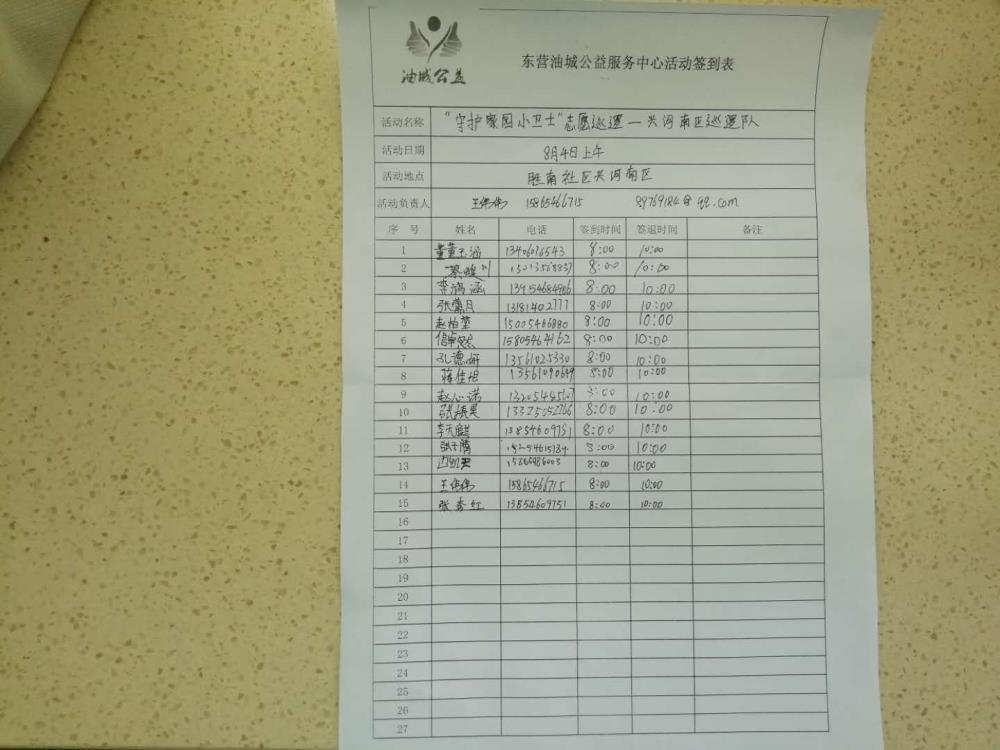 油城公益
东营油城公益服务中心活动签到表
活动名称 "守护家园小卫士"志愿巡逻一兴河南区巡逻队
活动日期 8月4日上午
活动地点 胜南社区兴河南区
活动负责人 王伟伟 15865466715 @qq.com
序号 姓名 电话 签到时间 签退时间 备注
1 8:00 10:00
2 8:00 10:00
3 李鸿涵 8:00 10:00
4 13181402777 8:00 10:00
5 赵柏堃 15005466880 8:00 10:00
6 15805464162 8:00 10:00
7 孔德妍 13561025330 8:00 10:00
8 8:00 10:00
9 赵心诺 8:00 10:00
10 张振昊 8:00 10:00
11 李天麒 13854609751 8:00 10:00
12 8:00 10:00
13 8:00 10:00
14 王伟伟 15865466715 8:00 10:00
15 张秀红 13854609751 8:00 10:00
16
17
18
19
20
21
22
23
24
25
26
27